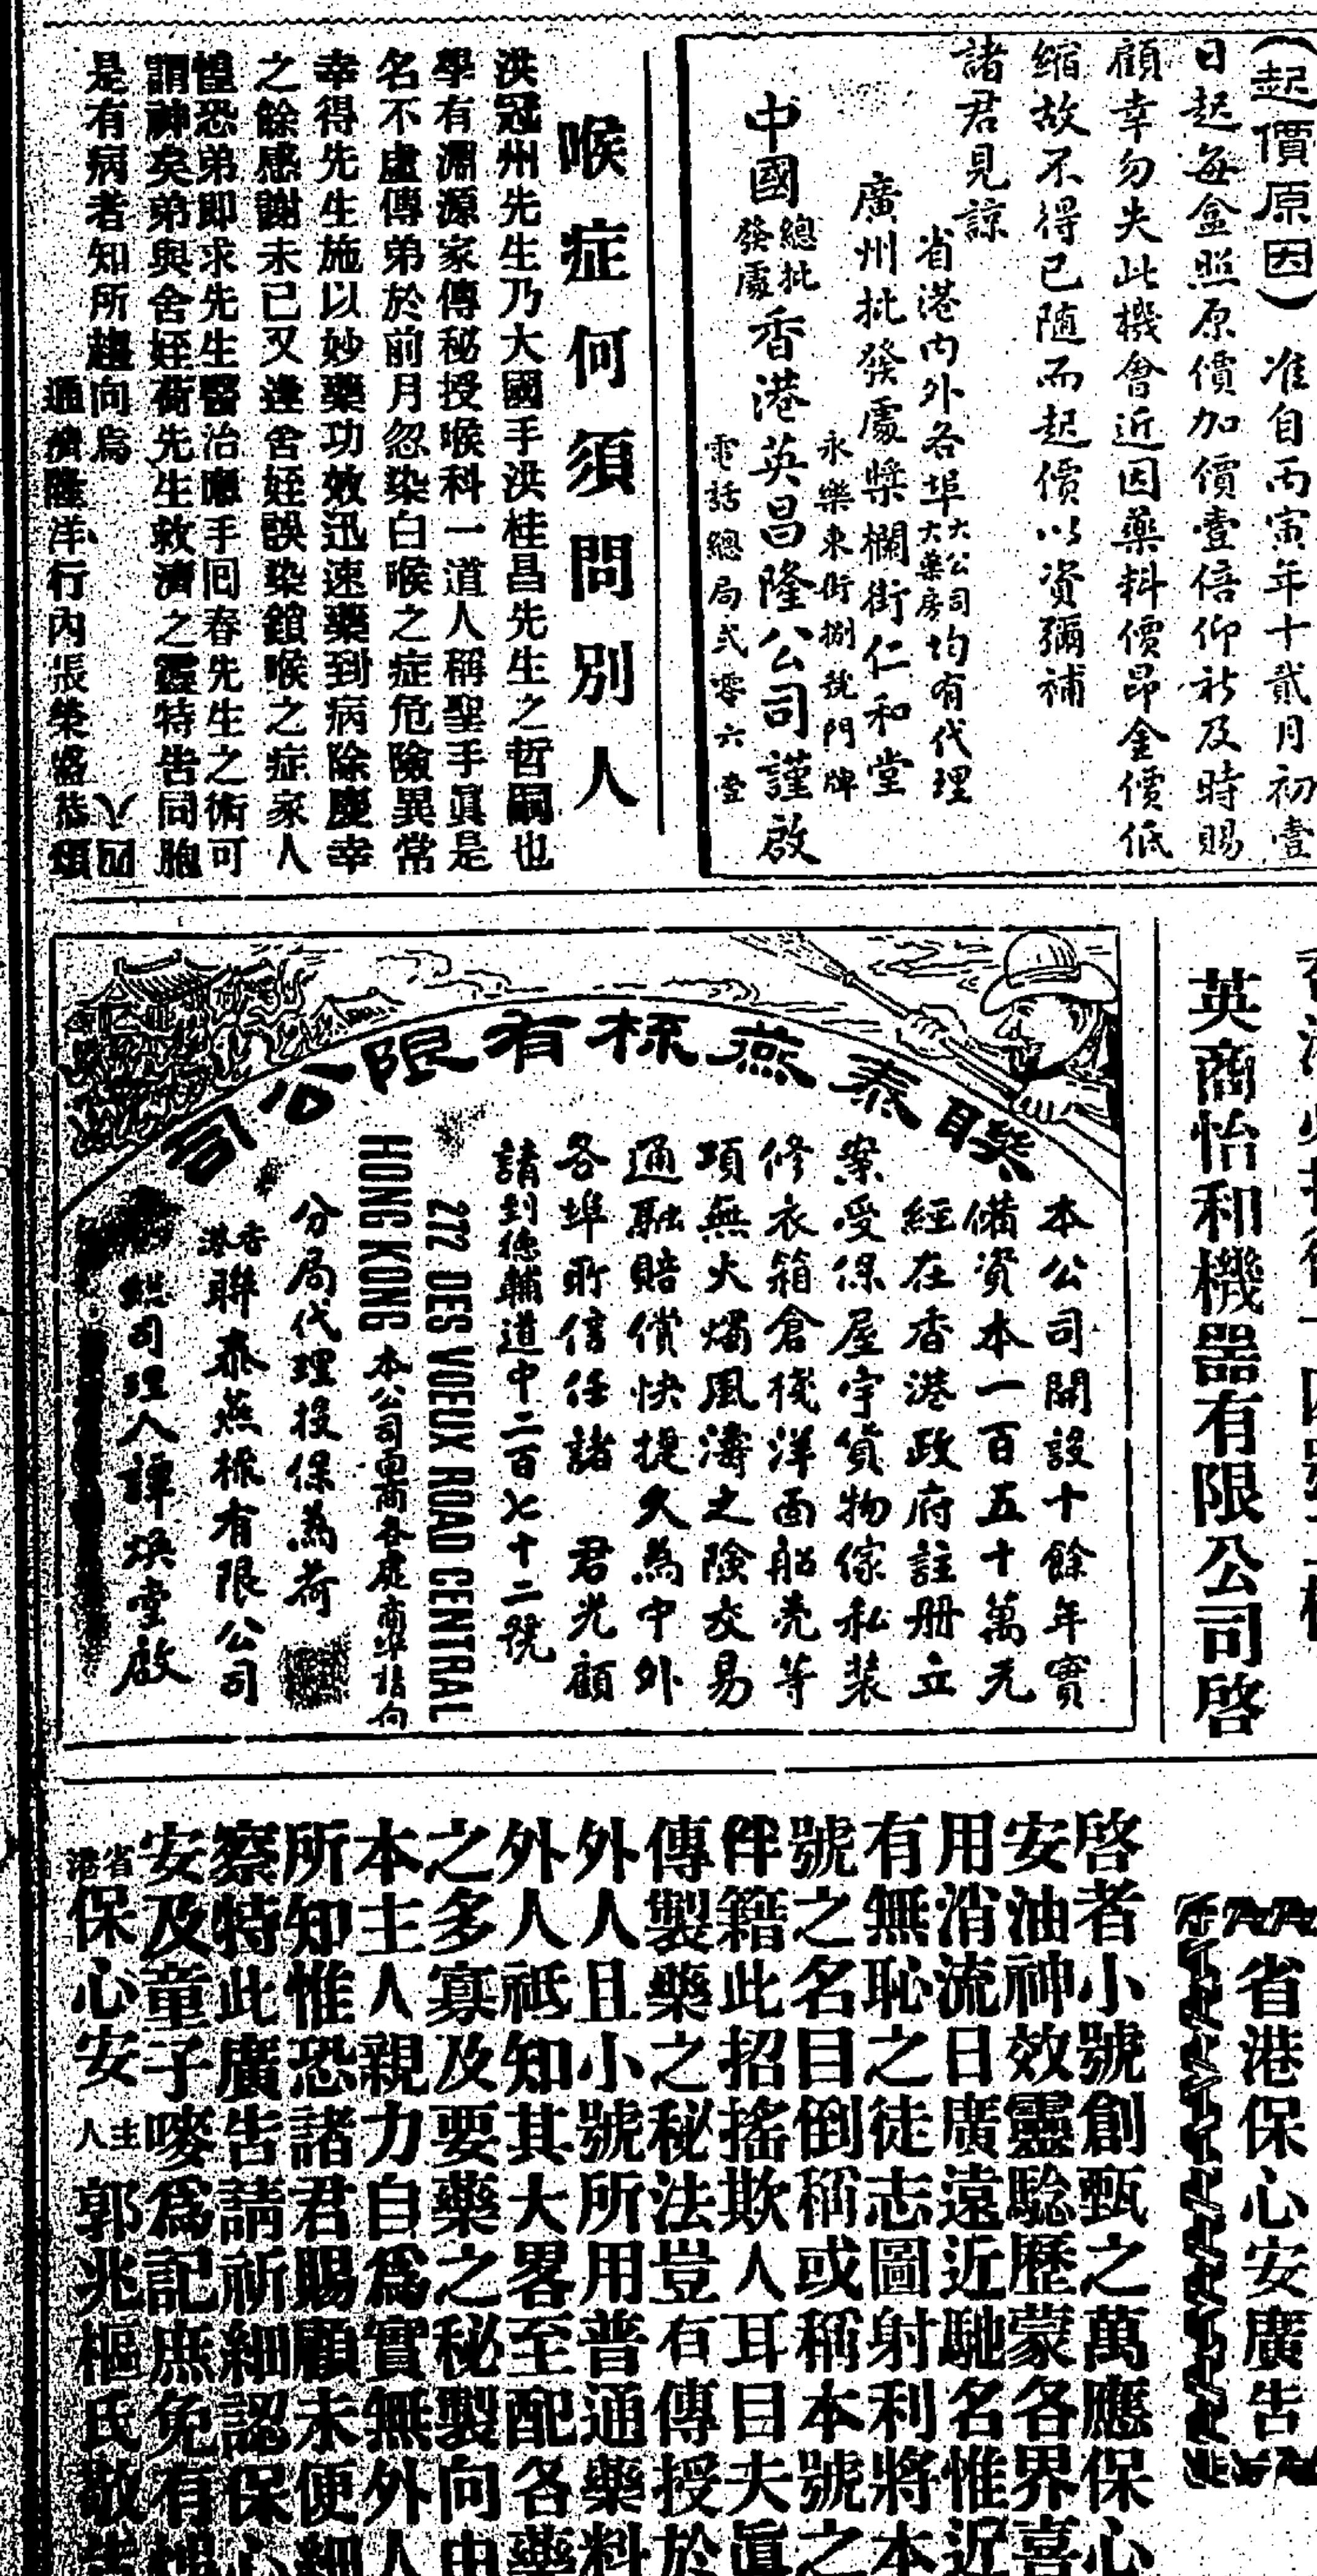 (起價原因)准自丙寅年十貳月初壹
日起每盒照原價加價壹倍仰祈及時賜
顧幸勿失此機會近因藥料價昂金價低
縮故不得已随而起價以資彌補
諸君見諒
省港内外各埠大公司大藥房均有代理
廣州批發處槳欄街仁和堂
永樂東街捌號門牌
中國總批發處香港英昌隆公司謹啟
電話總局弍零六壹
喉症何須問別人
洪冠州先生乃大國手洪桂昌先生之哲嗣也
學有淵源家傳秘授喉科一道人稱聖手眞是
名不虛傳弟於前月忽染白喉之症危險異常
幸得先生施以妙藥功效迅速藥到病除慶幸
之餘感謝未已又逢舍姪誤染鎖喉之症家人
惶恐弟即求先生醫治應手囘春先生之術可
謂神矣弟與舍姪荷先生救濟之靈特告同胞
是有病者知所趨向焉
通濟隆洋行內張榮
英商怡和機器有限公司啓
聯泰燕梳有限公司
本公司開設十餘年實
備資本一百五十萬元
經在香港政府註册立
案受保屋宇貨物傢私裝
修衣箱倉棧洋面船壳等
項無火燭風濤之險交易
通融賠償快捷久為中外
各埠所信任諸 君光顧
請到德輔道中二百七十二號
272 DES VOEUX ROAD CENTRAL
HONG KONG 本公司
分局代理投保為荷
香港聯泰燕梳有限公司
總司理人譚煥堂啟
省港保心安廣告
啓者小號創甄之萬應保心
安油神效靈驗歷蒙各界喜
用消流日廣遠近馳名惟近
有無恥之徒志圖射利將本
號之名目倒稱或稱本號之
伴籍此招搖欺人耳目夫眞
傳製藥之秘法豈有傳授於
外人且小號所用普通藥料
外人祗知其大畧至配各藥
之多寡及要藥之秘製向由
本主人親力自爲實無外人
所知惟恐諸君賜顧未便細
察特此廣告請祈細認保心
安及童子嘜爲記庶免有悞
省港保心安主人郭兆樞氏敬告